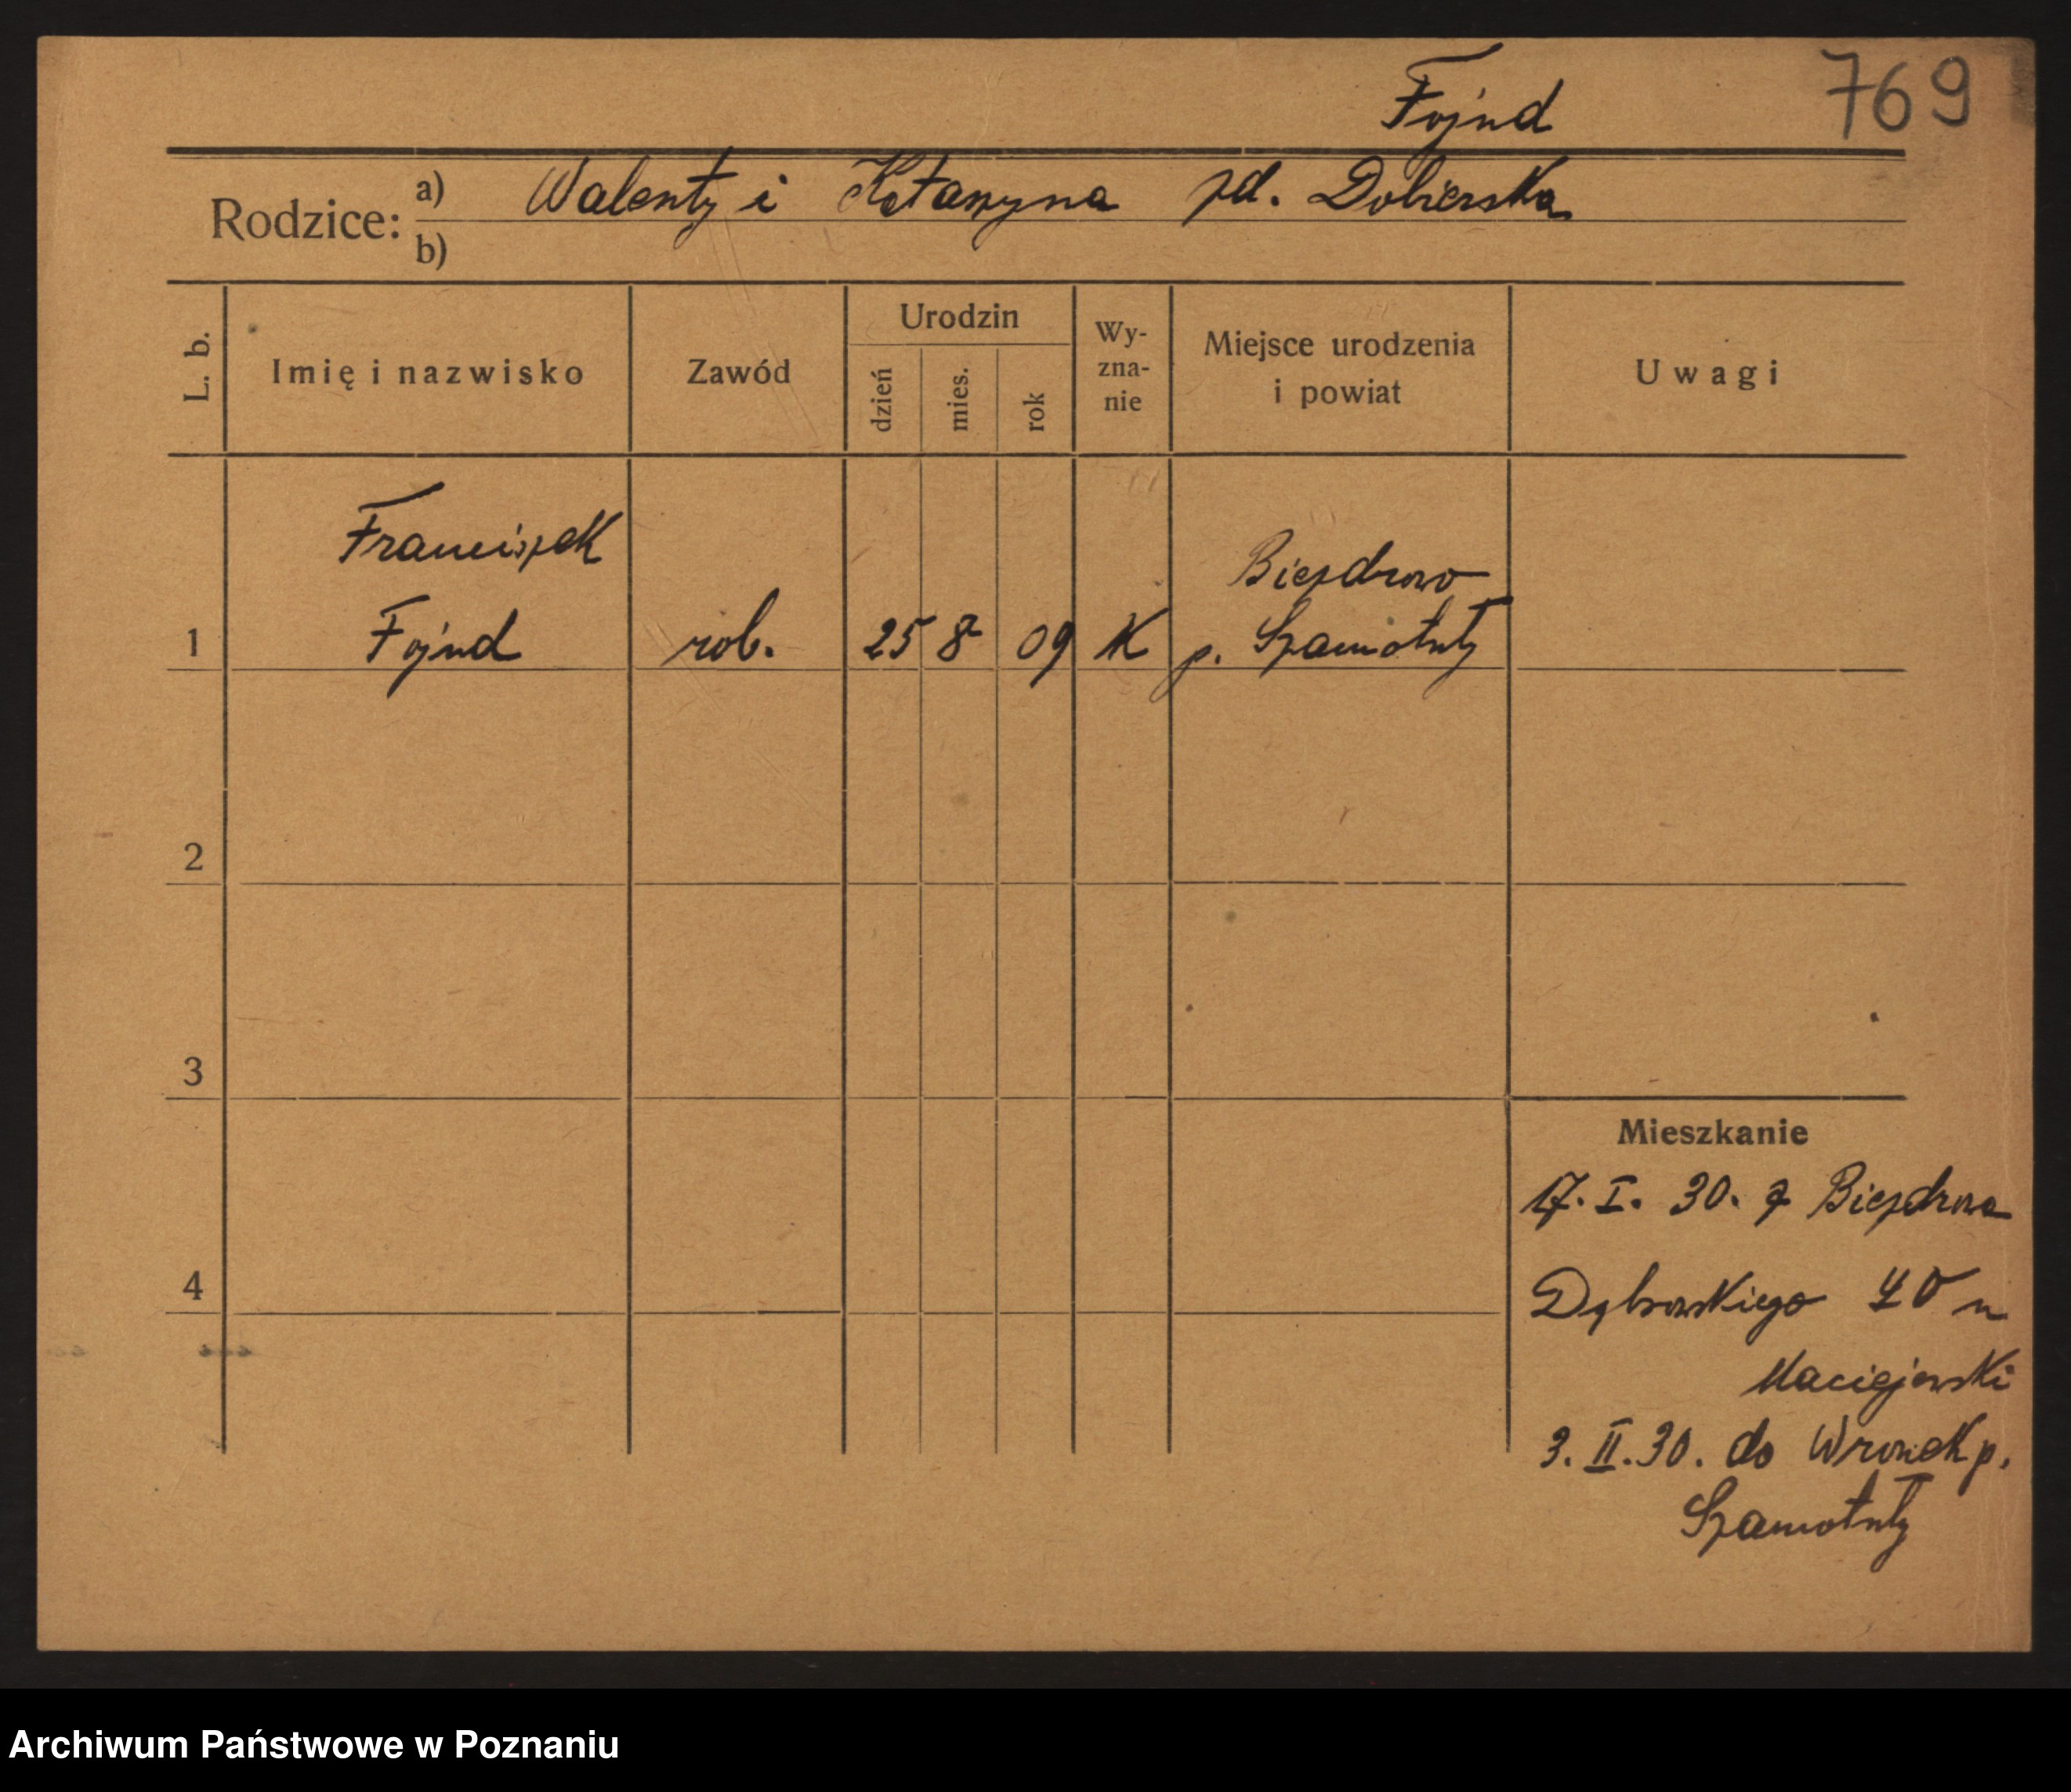 769
Fojnd
Rodzice: a) Walenty i Katarzyna zd. Dobierska
b)
L. b. Imię i nazwisko Zawód Urodzin dzień mies. rok Wy-zna-nie Miejsce urodzenia i powiat Uwagi
Franciszek Biezdrowo
1 Fojnd rob. 25 8 09 K p. Szamotuły
2
3
Mieszkanie
17. I. 30. z Biezdrowa
4
Dąbrowskiego 40 u
Maciejewski
3. II. 30. do Wronek p.
Szamotuły
Archiwum Państwowe w Poznaniu